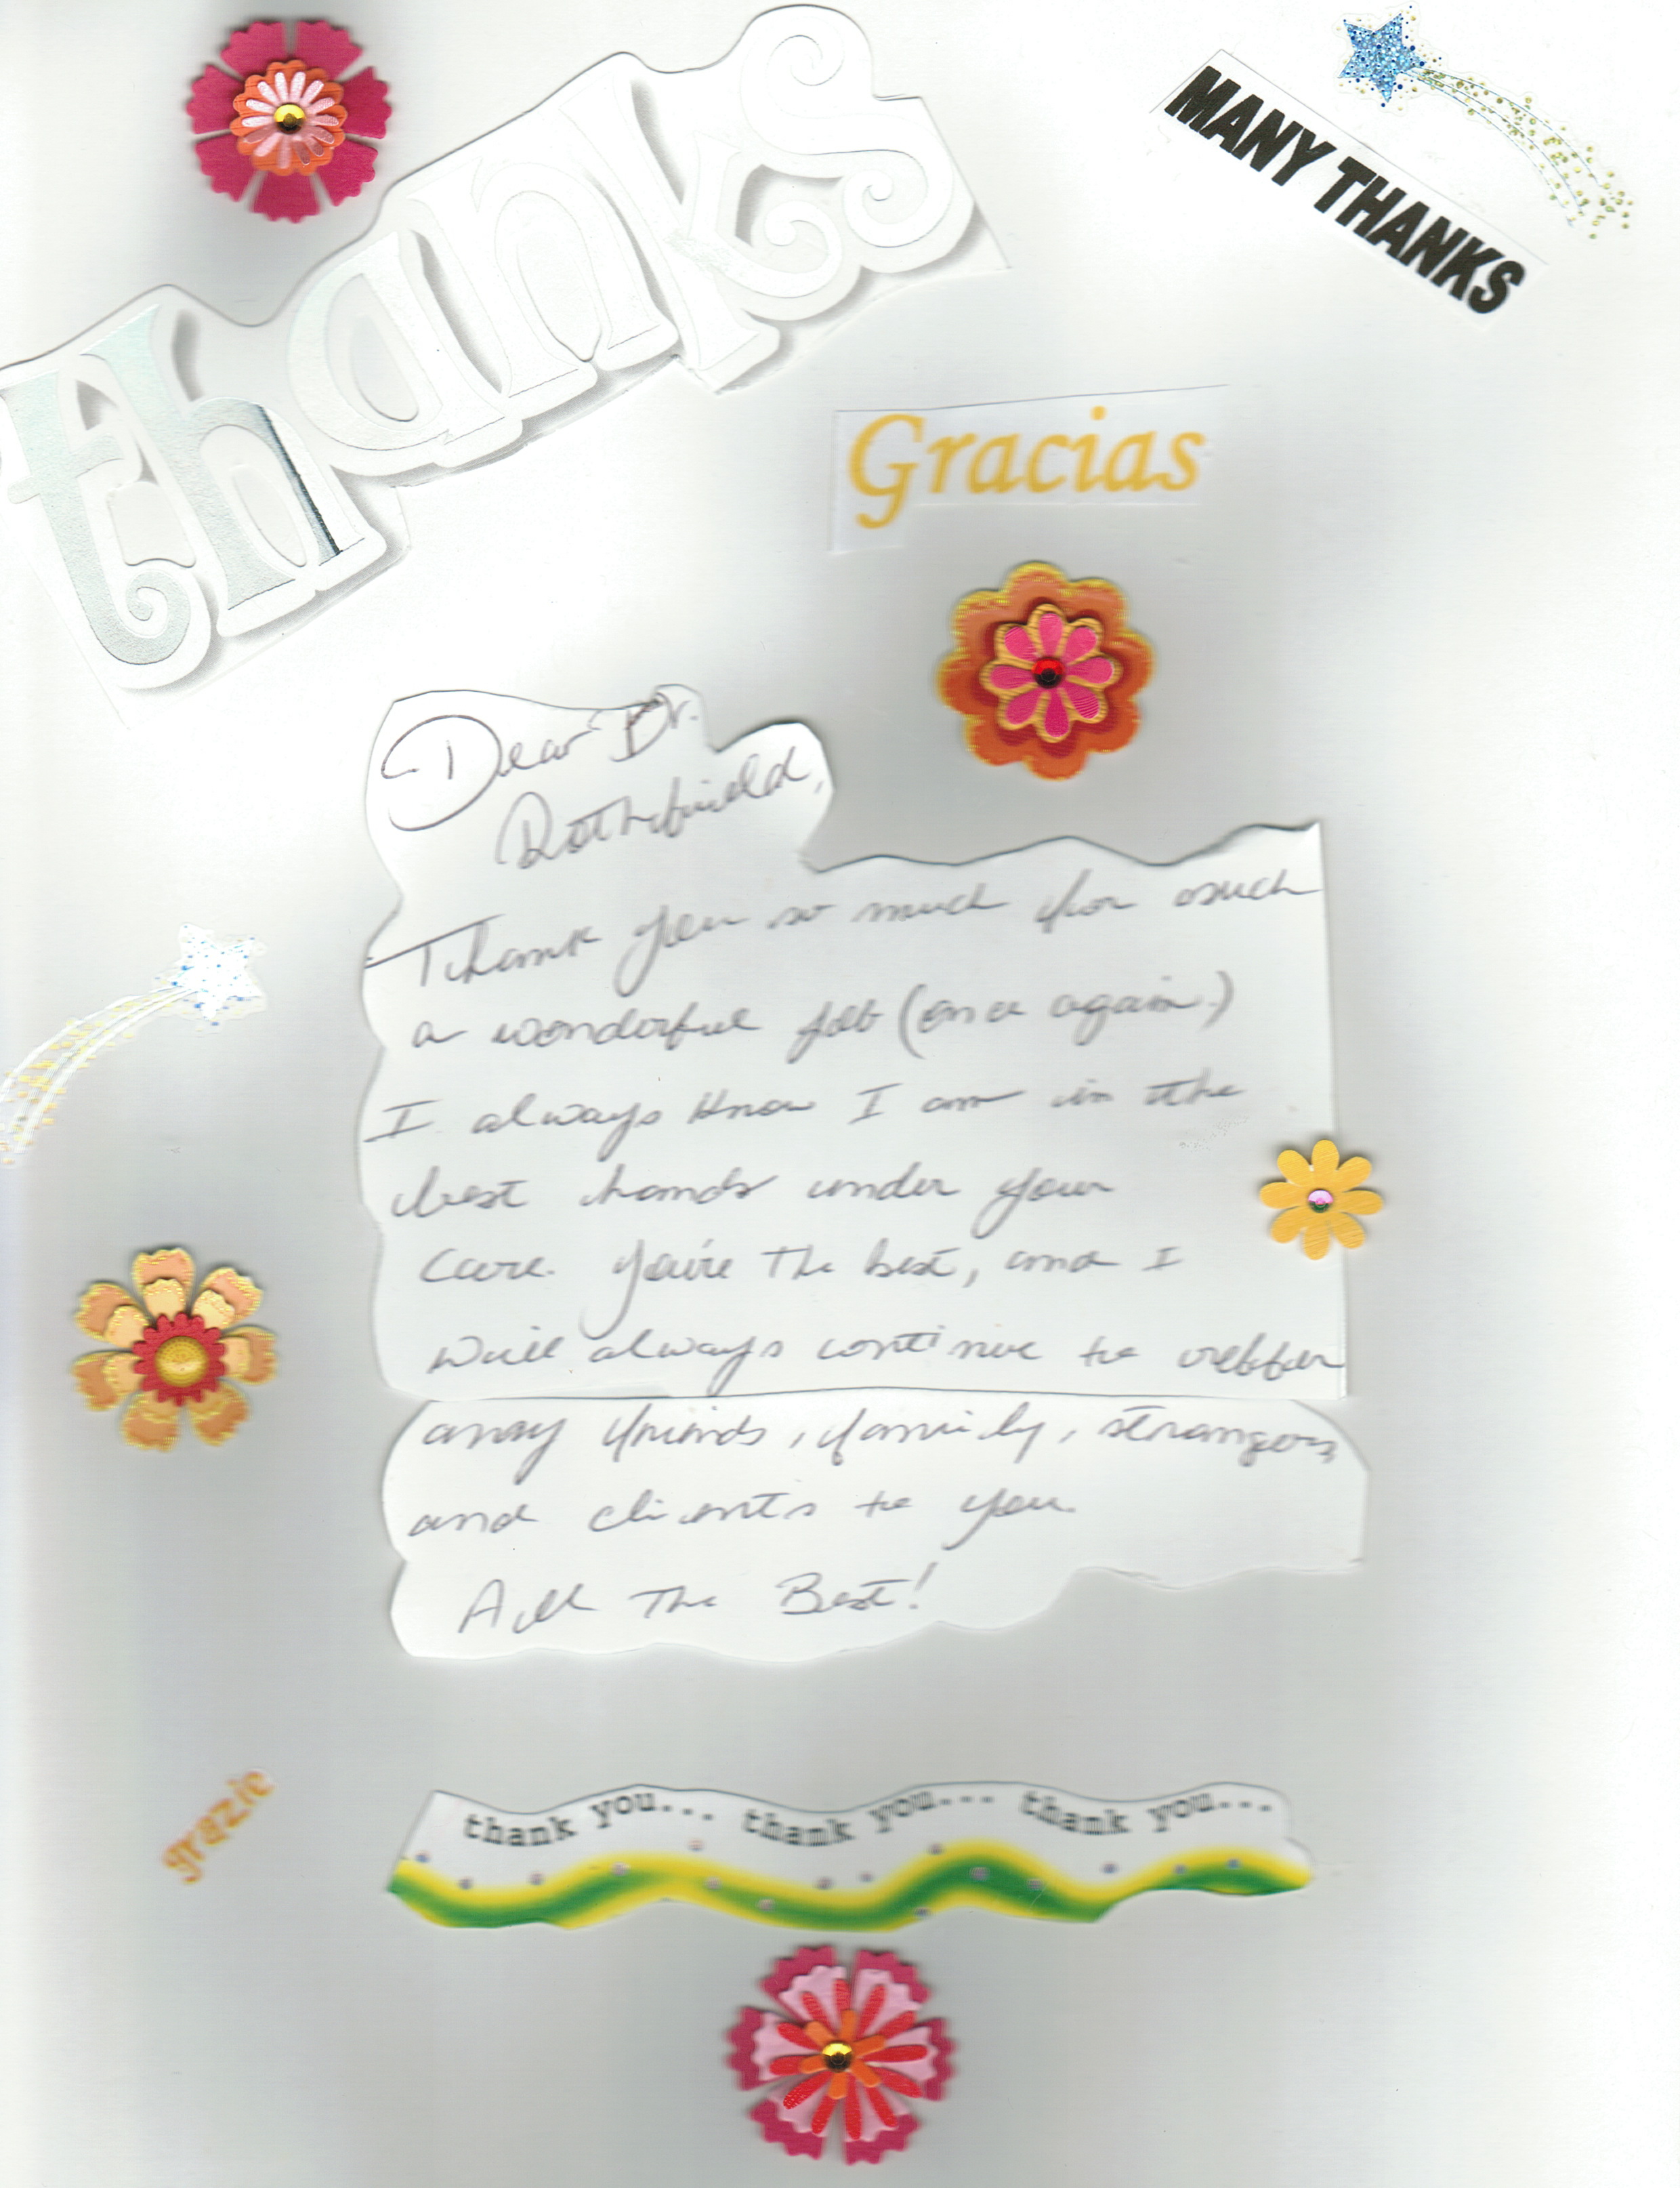 thanks
MANY THANKS
Gracias
Dear Dr.
Rothfeild,
Thank you so much for such
a wonderful job (once again.)
I always know I am in the
best hands under your
care. You're the best, and I
will always continue to reffer
any friends, family, strangers,
and clients to you.
All The Best!
grazie
thank you... thank you... thank you...